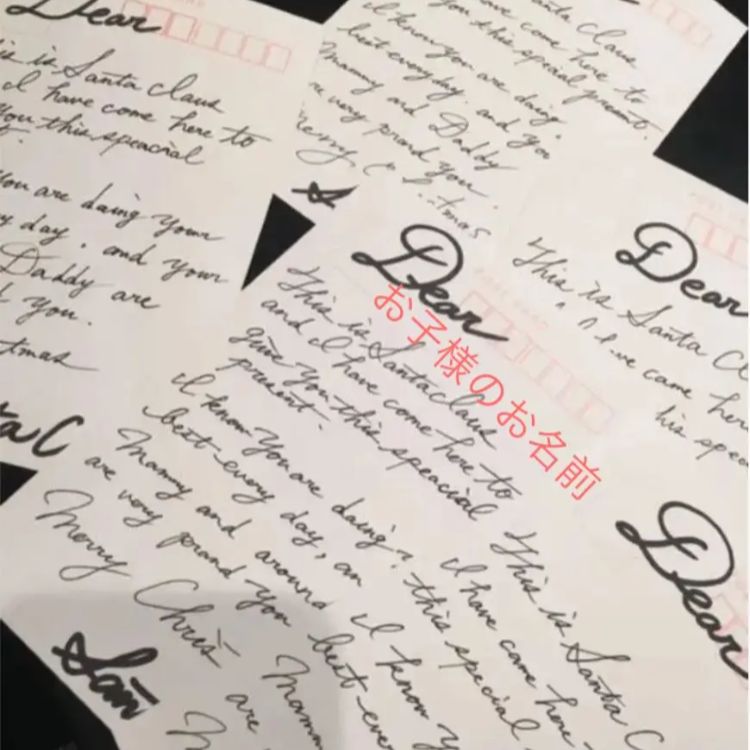 Dear
is is Santa Claus
I have come here to
you this speacial
you are daing your
y day, and your
Daddy are
d you.
tmas
ta C
Santa Claus
have come here to
you this special present.
I know you are daing,
best everyday, and you
Mammy and Daddy
re very proud you.
Merry
tmas
Dear
お子様のお名前
This is Santaclaus
and I have come here to
give you this speacial
present.
I know you are daing
best every day, an
Mammy and around
are very prand you
Merry Chris
San
Dear
This is Santa Cl
came her
his spec
Dear
This is Santa C
I have came here
this special
I know y
best ever
Mamm
are
M